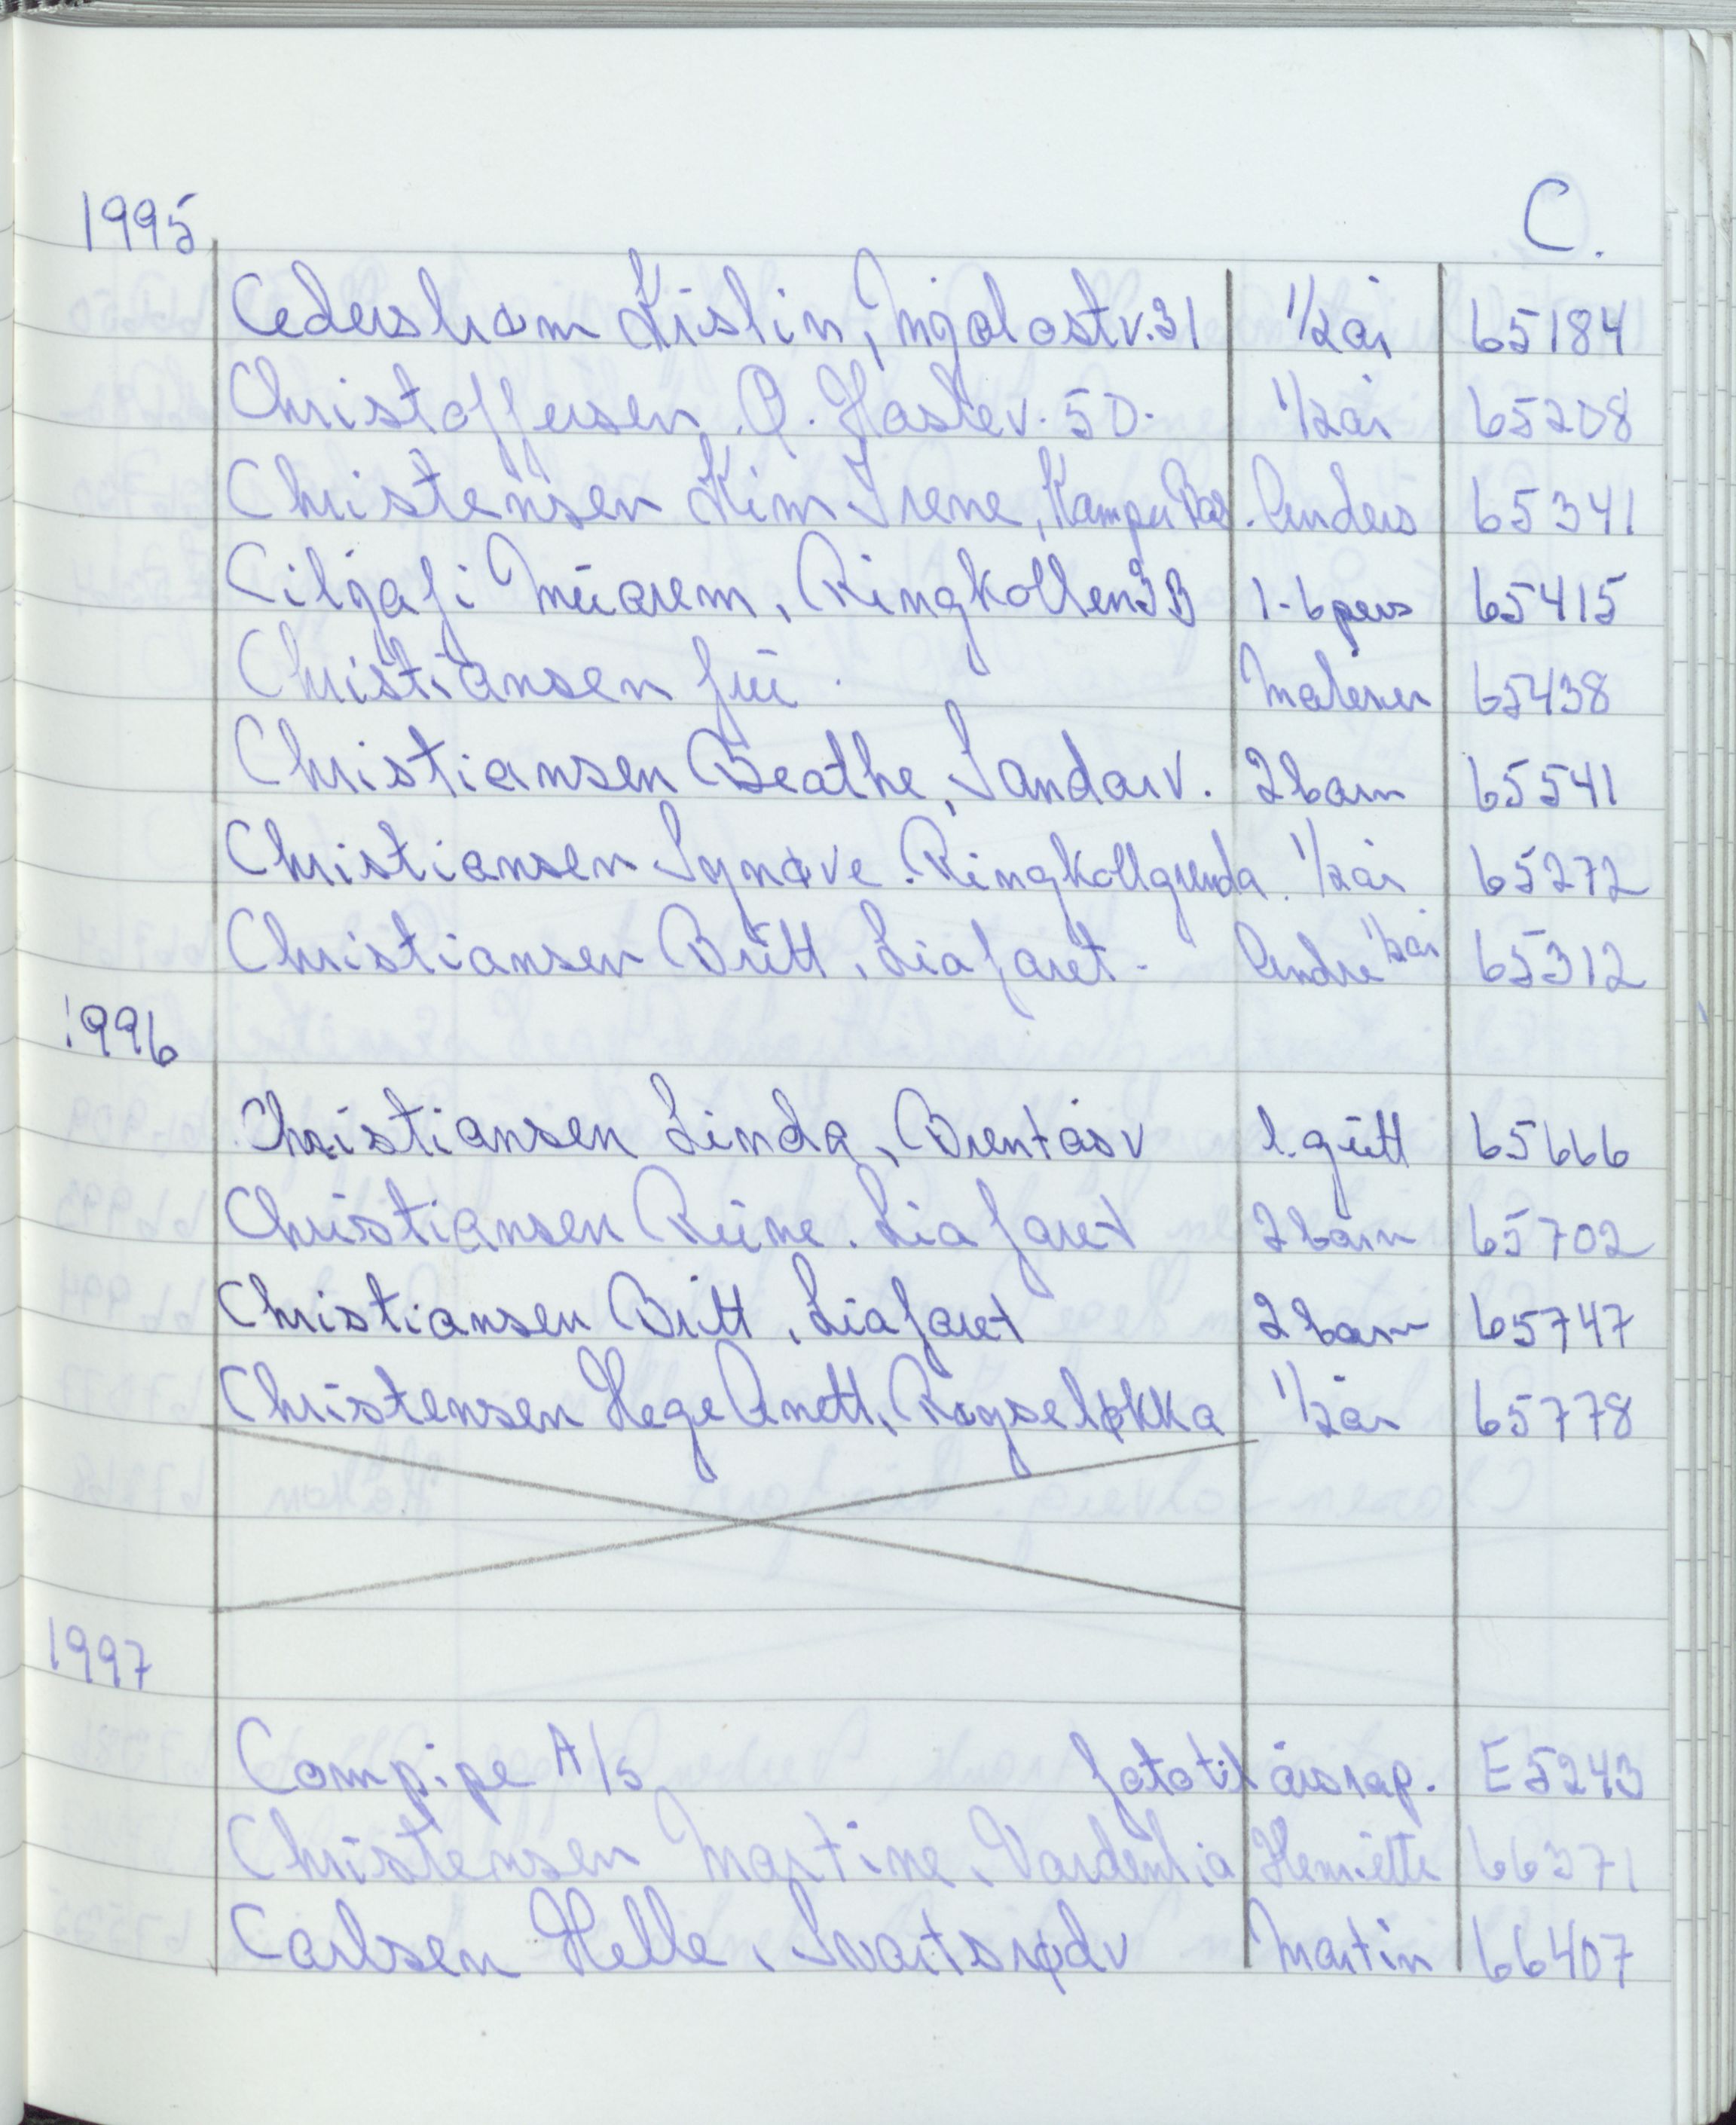 1995
C.
Cedersham Kristin, Mjølostv. 31 1/2år 65184
Christoffersen, Q. Haslev. 50. 1/2år 65208
Christensen Kim Irene, Kamper Anders 65341
Cilgafi Muarem, Ringkollen 3B 1-6 pers 65415
Christiansen fru. Malerier 65438
Christiansen Beathe, Sandarv. 2barn 65541
Christiansen Synøve. Ringkollgrenda. 1/2år 65272
Christiansen Britt, Liafaret. Andre 1/2år 65312
1996
Christiansen Linda, Brentåsv 1.gutt 65666
Christiansen Rune. Liafaret 2barn 65702
Christiansen Britt, Liafaret 2barn 65747
Christensen Hege Anett, Røyseløkka 1/2år 65778
1997
Compipe A/s foto til årsrap. E5243
Christensen Martine, Vardenlia Henriette 66371
Carlsen Helle, Svartsrødv Martin 66407